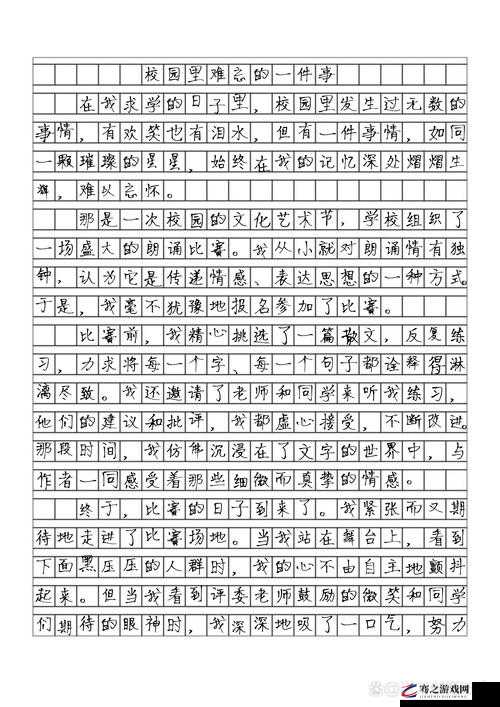 校园里难忘的一件事
在我求学的日子里，校园里发生过无数的
事情，有欢笑也有泪水，但有一件事情，如同
一颗璀璨的星星，始终在我的记忆深处熠熠生
辉，难以忘怀。
那是一次校园的文化艺术节，学校组织了
一场盛大的朗诵比赛。我从小就对朗诵情有独
钟，认为它是传递情感、表达思想的一种方式。
于是，我毫不犹豫地报名参加了比赛。
比赛前，我精心挑选了一篇散文，反复练
习，力求将每一个字、每一个句子都诠释得淋
漓尽致。我还邀请了老师和同学来听我练习，
他们的建议和批评，我都虚心接受，不断改进。
那段时间，我仿佛沉浸在了文字的世界中，与
作者一同感受着那些细微而真挚的情感。
终于，比赛的日子到来了。我紧张而又期
待地走进了比赛场地。当我站在舞台上，看到
下面黑压压的人群时，我的心不由自主地颤抖
起来。但当我看到评委老师鼓励的微笑和同学
们期待的眼神时，我深深地吸了一口气，努力
骞之游戏网